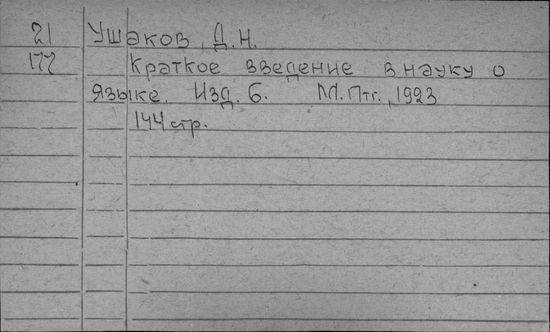 21 Ушаков, Д.Н.
177 Краткое введение в науку о
языке. Изд. 6. М.Птг., 1923
144 стр.